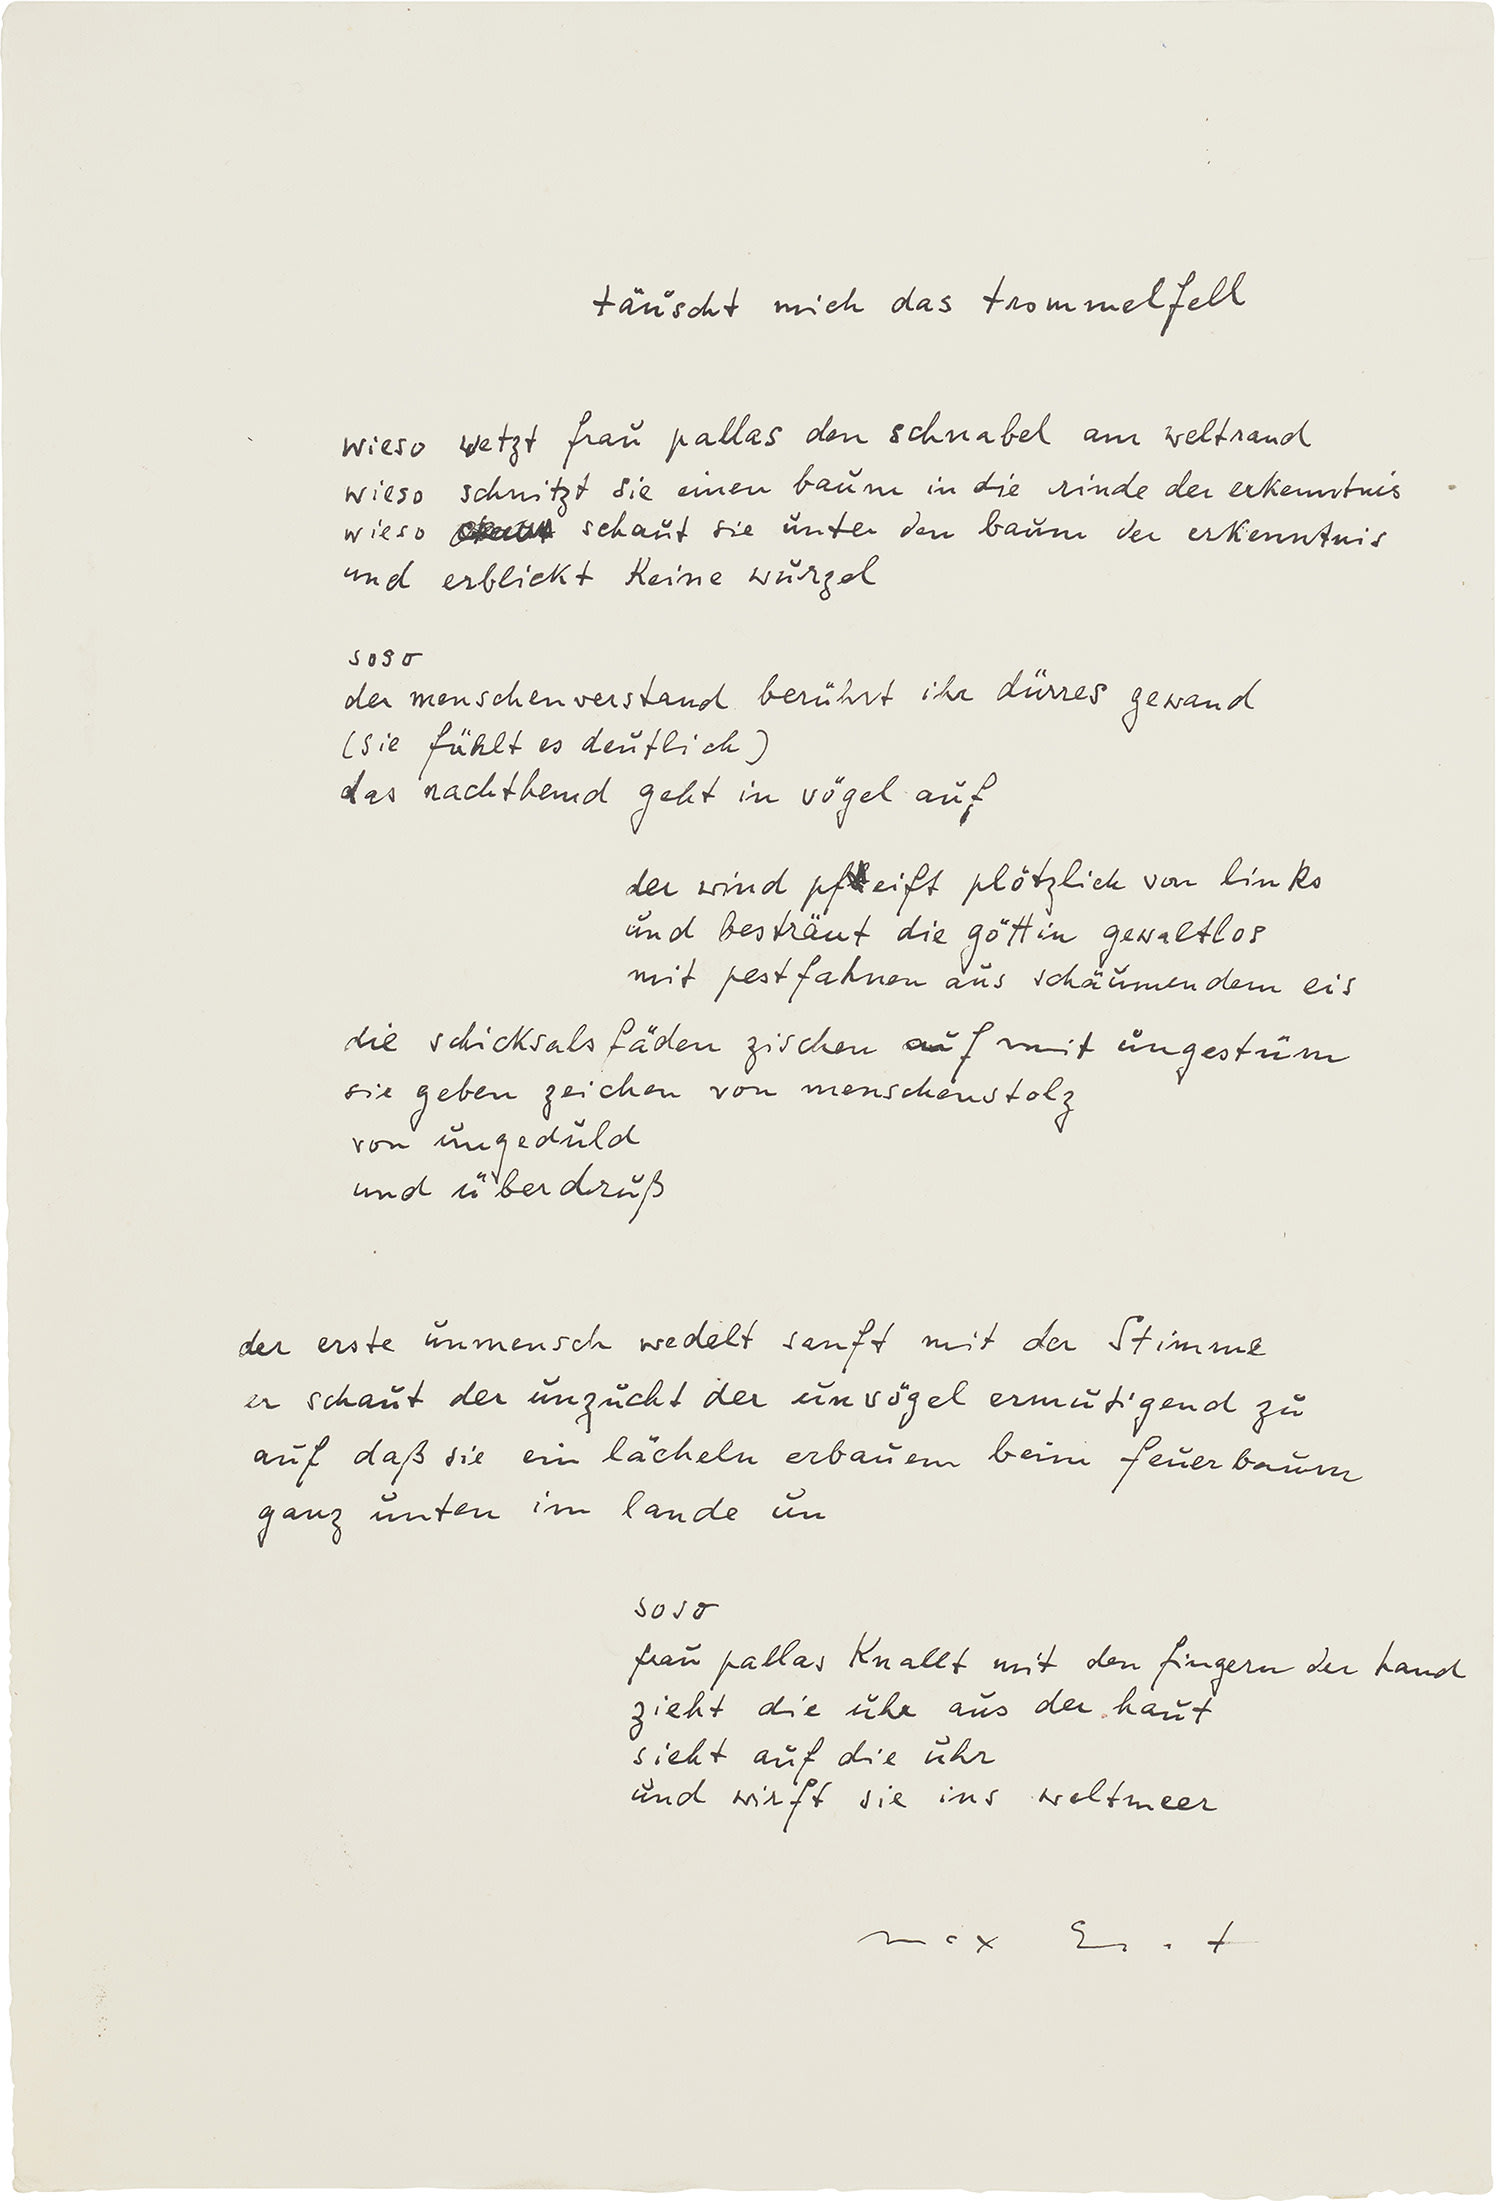 täuscht mich das trommelfell
wieso wetzt frau pallas den schnabel am weltrand
wieso schnitzt sie einen baum in die rinde der erkenntnis
wieso schaut sie unter den baum der erkenntnis
und erblickt keine wurzel
soso
der menschenverstand berührt ihr dürres gewand
(sie fühlt es deutlich)
das nachthemd geht in vögel auf
der wind pfeift plötzlich von links
und besträut die göttin gewaltlos
mit pestfahnen aus schäumendem eis
die schicksalsfäden zischen auf mit ungestüm
sie geben zeichen von menschenstolz
von ungeduld
und überdruß
der erste unmensch wedelt sanft mit der Stimme
er schaut der unzucht der unvögel ermutigend zu
auf daß sie ein lächeln erbauen beim feuerbaum
ganz unten im lande un
soso
frau pallas knallt mit den fingern der hand
zieht die uhr aus der haut
sieht auf die uhr
und wirft sie ins weltmeer
max Ernst